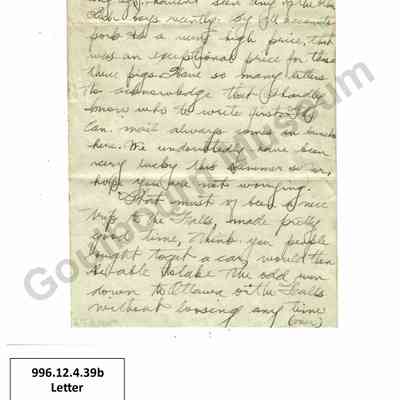 long ago, havent seen any of the New
boys recently. By all accounts
pork is a very high price, that
was an exceptional price for those
three pigs. Have so many letters
to acknowledge that I hardly
know who to write first. The
Can. mail always comes in bunches
here. We undoubtedly have been
very lucky this summer so far,
hope you are not worrying.
That must of been a nice
trip to the Falls, made pretty
good time, think you people
ought to get a car, would then
be able to take the odd run
down to Ottawa or the Falls
without loosing any time
(over)
Goulbourn Museum
996.12.4.39b
Letter